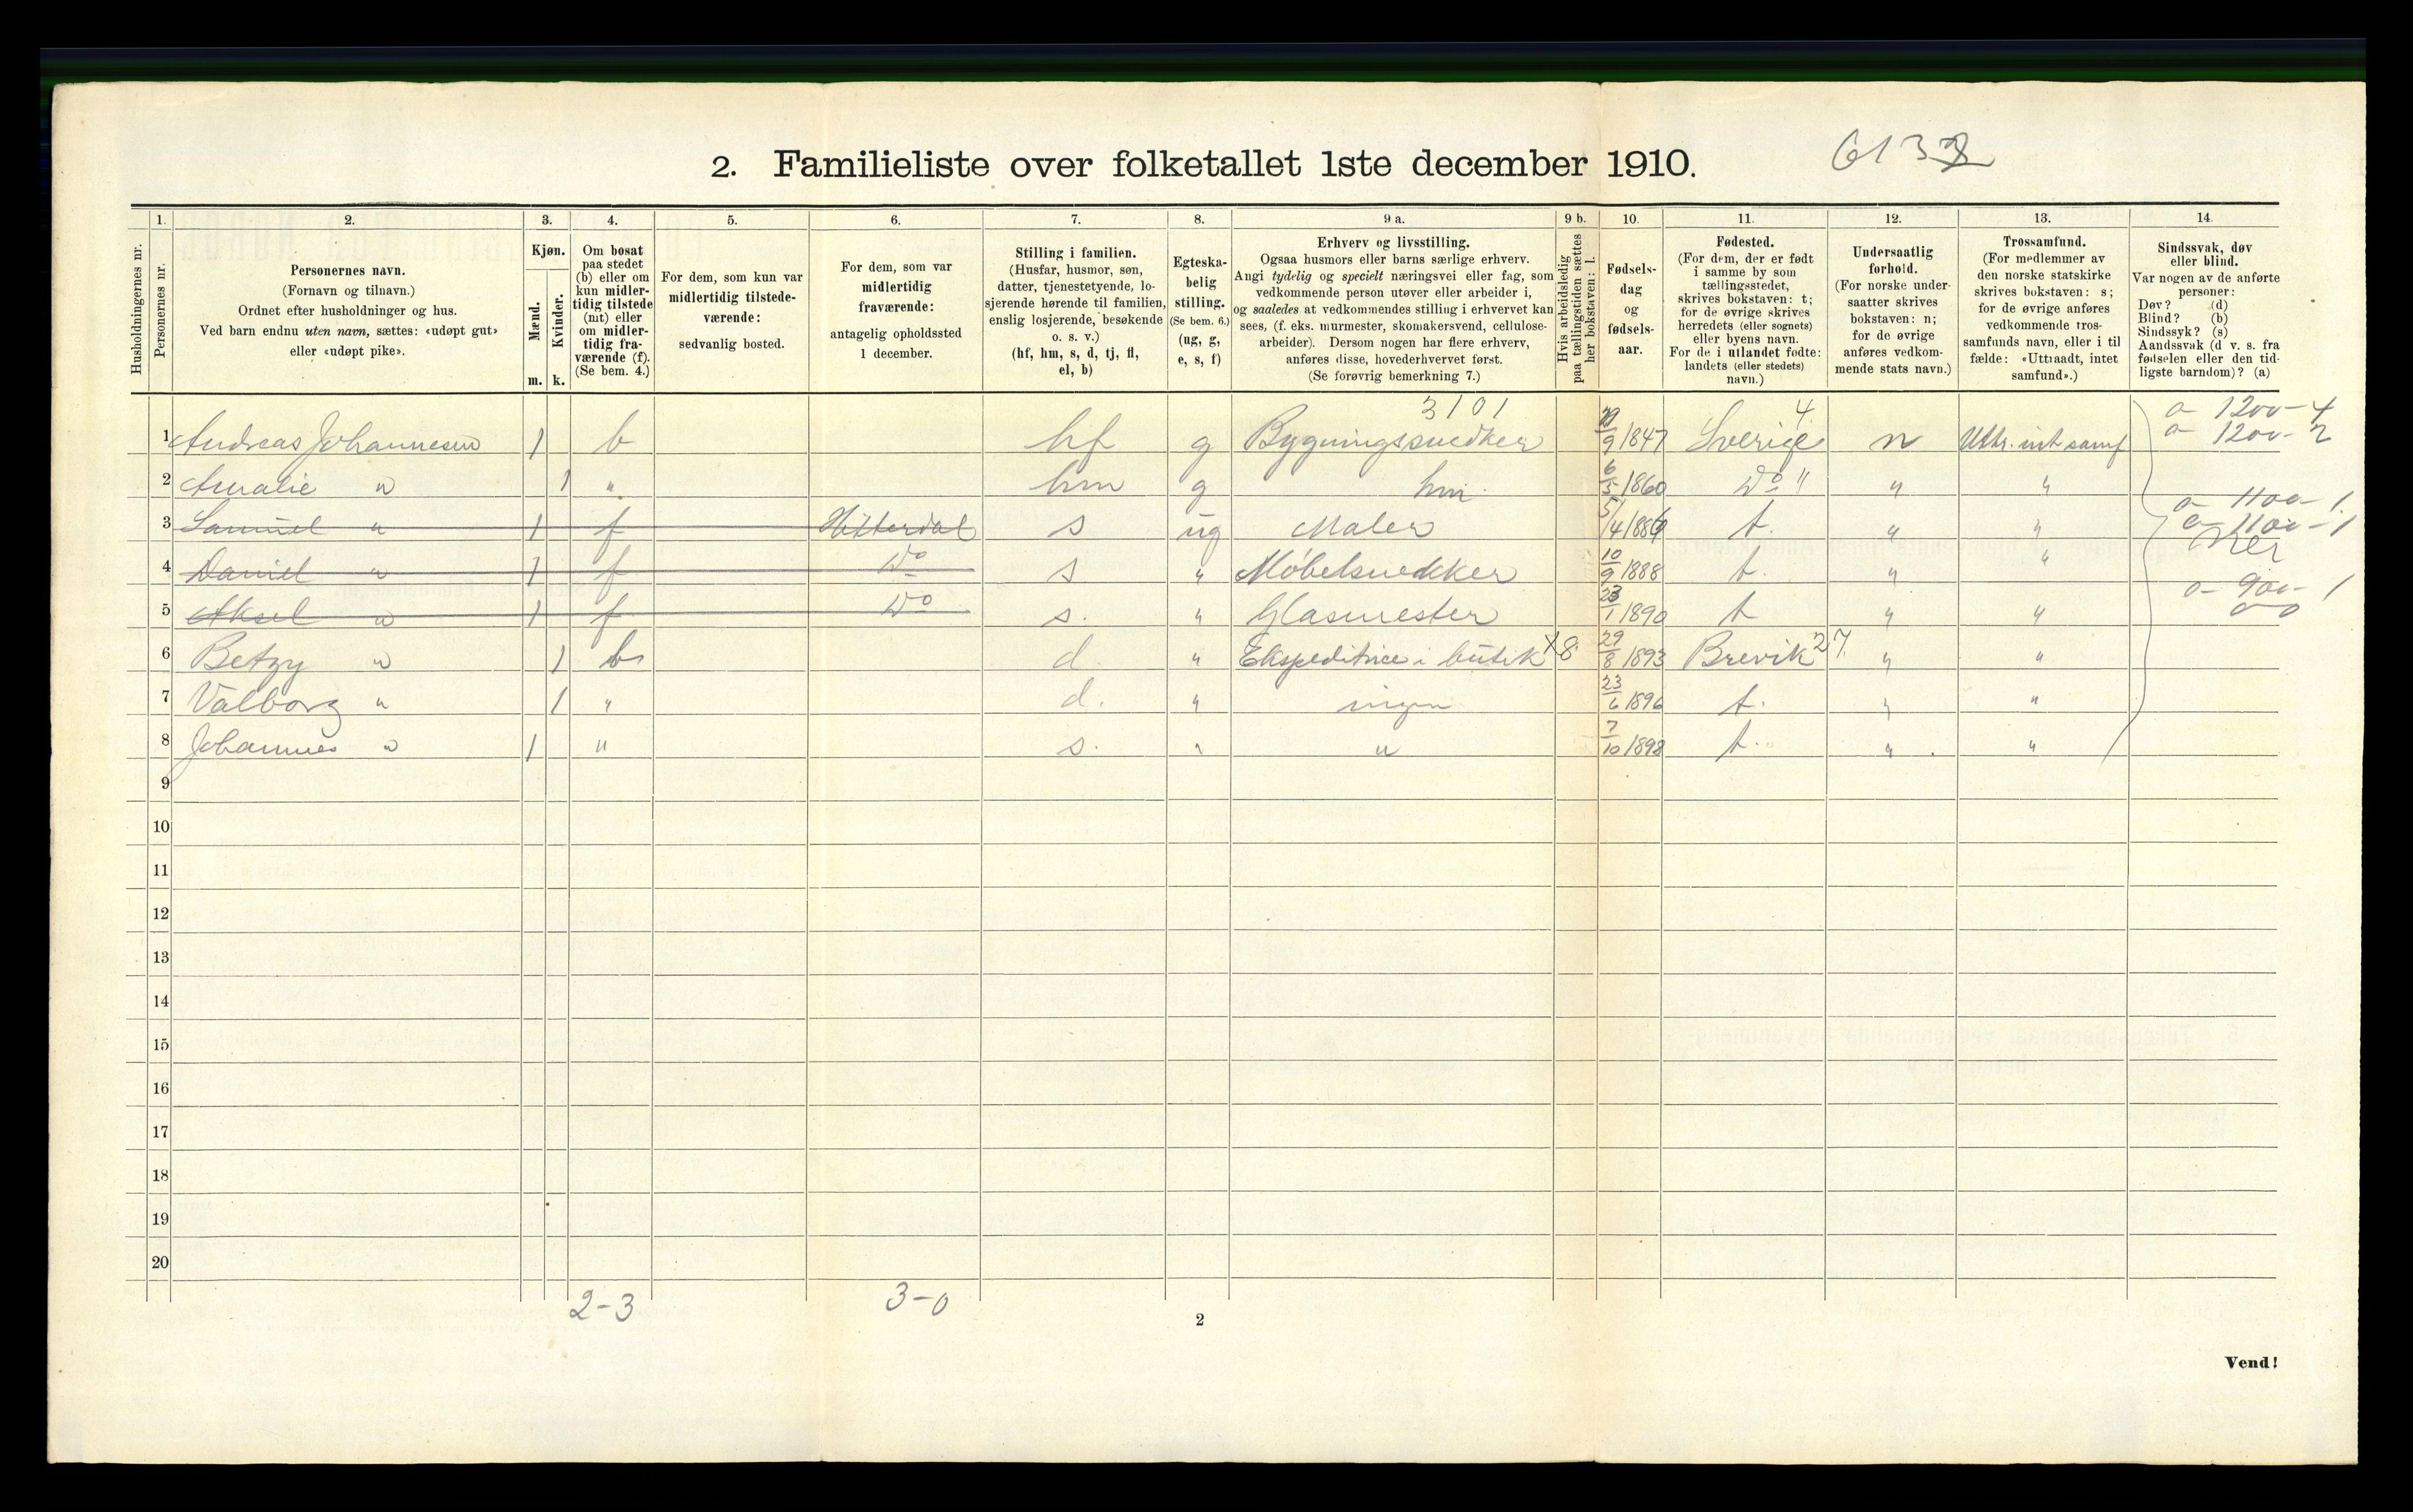 2. Familieliste over folketallet 1ste december 1910.
1. 2. 3. 4. 5. 6. 7. 8. 9 a. 9 b. 10. 11. 12. 13. 14.
Husholdningernes nr.
Personernes nr.
Personernes navn.
(Fornavn og tilnavn.)
Ordnet efter husholdninger og hus.
Ved barn endnu uten navn, sættes: «udøpt gut»
eller «udøpt pike».
Kjøn.
Mænd.
Kvinder.
m. k.
Om bosat
paa stedet
(b) eller om
kun midler-
tidig tilstede
(mt) eller
om midler-
tidig fra-
værende (f).
(Se bem. 4.)
For dem, som kun var
midlertidig tilstede-
værende:
sedvanlig bosted.
For dem, som var
midlertidig
fraværende:
antagelig opholdssted
1 december.
Stilling i familien.
(Husfar, husmor, søn,
datter, tjenestetyende, lo-
sjerende hørende til familien,
enslig losjerende, besøkende
o. s. v.)
(hf, hm, s, d, tj, fl,
el, b)
Egteska-
belig
stilling.
(Se bem. 6.)
(ug, g,
e, s, f)
Erhverv og livsstilling.
Ogsaa husmors eller barns særlige erhverv.
Angi tydelig og specielt næringsvei eller fag, som
vedkommende person utøver eller arbeider i,
og saaledes at vedkommendes stilling i erhvervet kan
sees, (f. eks. murmester, skomakersvend, cellulose-
arbeider). Dersom nogen har flere erhverv,
anføres disse, hovederhvervet først.
(Se forøvrig bemerkning 7.)
Hvis arbeidsledig
paa tællingstiden sættes
her bokstaven: l.
Fødsels-
dag
og
fødsels-
aar.
Fødested.
(For dem, der er født
i samme by som
tællingsstedet,
skrives bokstaven: t;
for de øvrige skrives
herredets (eller sognets)
eller byens navn.
For de i utlandet fødte:
landets (eller stedets)
navn.)
Undersaatlig
forhold.
(For norske under-
saatter skrives
bokstaven: n;
for de øvrige
anføres vedkom-
mende stats navn.)
Trossamfund.
(For medlemmer av
den norske statskirke
skrives bokstaven: s;
for de øvrige anføres
vedkommende tros-
samfunds navn, eller i til
fælde: «Uttraadt, intet
samfund».)
Sindssvak, døv
eller blind.
Var nogen av de anførte
personer:
Døv? (d)
Blind? (b)
Sindssyk? (s)
Aandssvak (d v. s. fra
fødselen eller den tid-
ligste barndom)? (a)
3101 4. a- 1200-4
1 Andreas Johannesen 1 b hf g Bygningssnedker 9 1847 Sverige n Uttr. int samf a- 1200-2
2 Amalie " 1 " hm g hm. 6/5 1860 Do " " "
a- 1100-1
3 Samuel " 1 f Hitterdal s ug Maler 5/4 188 t. " " a- 1100-1
4 Daniel " 1 f Do s " Møbelsnekker 10/9 1888 t. " "
a- 900-1
5 Aksel " 1 f Do s. " Glasmester 23/1 1890 t " "
6 Betzy " 1 b d " Ekspeditrice i butik X8 29/8 1893 Brevik 27. " "
7 Valborg " 1 " d. " ingen 23/6 1896 t. " "
8 Johannes " 1 " s. " " 7/10 1898 t. " "
9
10
11
12
13
14
15
16
17
18
19
20
2-3 3-0
2
Vend!